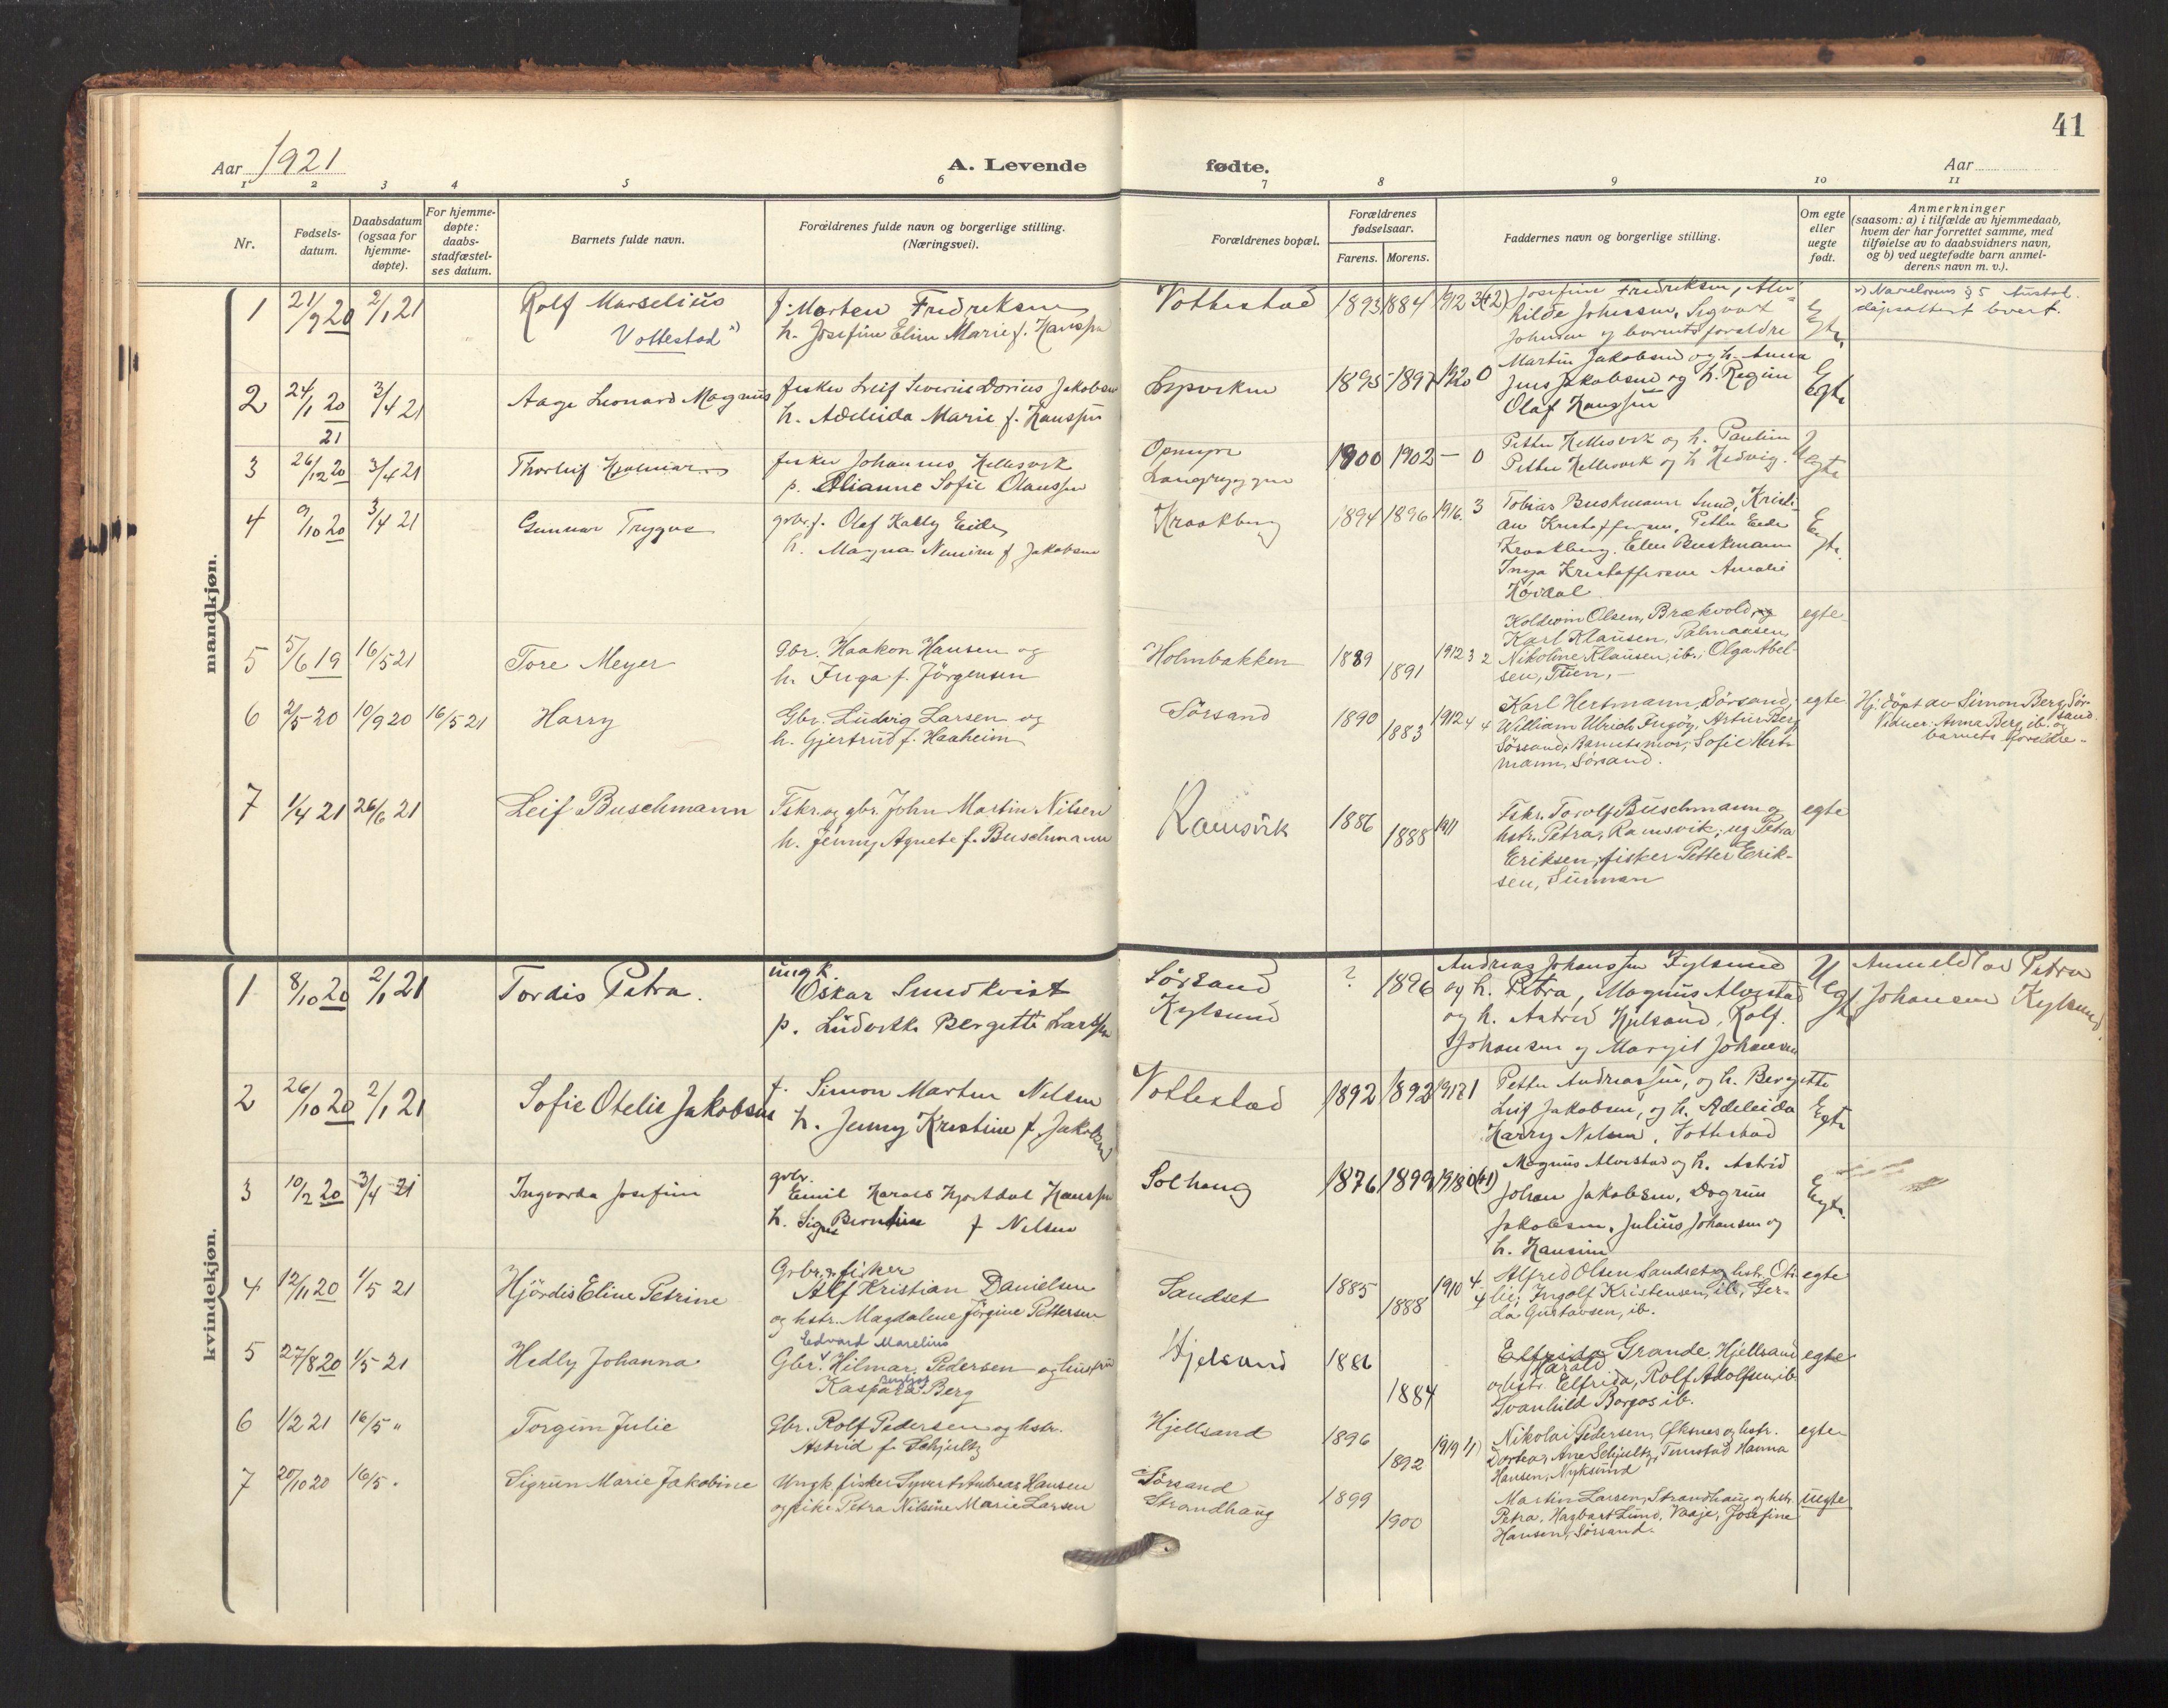 41
Aar 1921
A. Levende fødte.
Aar
1 2 3 4 5 6 7 8 9 10 11
Nr.
Fødsels-
datum.
Daabsdatum
(ogsaa for
hjemme-
døpte).
For hjemme-
døpte:
daabs-
stadfæstel-
ses datum.
Barnets fulde navn.
Forældrenes fulde navn og borgerlige stilling.
(Næringsvei).
Forældrenes bopæl.
Forældrenes
fødselsaar.
Farens. Morens.
Faddernes navn og borgerlige stilling.
Om egte
eller
uegte
født.
Anmerkninger
(saasom: a) i tilfælde av hjemmedaab,
hvem der har forrettet samme, med
tilføielse av to daabsvidners navn,
og b) ved uegtefødte barn anmel-
derens navn m. v.).
mandkjøn.
1 21/9 20 2/1 21 Rolf Marselius
Vottestad
f. Morten Fredriksen
h. Josefine Eline Marie f. Hanssen
Vottestad 1893 1884 1912
Josefine Fredriksen,
Johnsen, Sigvart
Johnsen og barnets foreldre
Egte
2 24/1 20 3/4 21
21
Aage Leonard Magnus
fisker Leif Severin Dorius Jakobsen
h. Adeleida Marie f. Hanssen
1895 1897 1920 0
Martin Jakobsen og h. Anna
Jens Jakobsen og h. Regine
Olaf Hanssen
Egte
3 26/12 20 3/4 21 Thorleif Hjalmar
fisker Johannes Hellesvik
p. Olianne Sofie Olaussen
Opmyre
Langryggen
1900 1902 – 0
Petter Hellesvik og h. Pauline
Petter Hellesvik og h. Hedvig.
Uegte
4 9/10 20 3/4 21 Gunnar Trygve
gbr. f. Olaf Kally Eide
h. Magna f. Jakobsen
Kraakberg 1894 1896 1916. 3
Tobias Buskmann Sund, Kristi-
an Kristoffersen, Petter Eide
Kraakberg. Elen Buskmann
Inga Kristoffersen Amalie
Hovdal.
Egte.
5 5/6 19 16/5 21 Tore Meyer
Gbr. Haakon Hansen og
h. Inga f. Jørgensen
Holmbakken 1889 1891 1912 3 2
Koldevin Olsen, Brækvold, og
Karl Klausen,
Nikoline Klausen, ib.; Olga Abel-
sen, Tuen, –
egte
6 2/5 20 10/9 20 16/5 21 Harry
Gbr. Ludvig Larsen og
h. Gjertrud f. Haaheim
Sørsand 1890 1883 1912 4 4
Karl Hertmann, Sørsand;
William Ulrich Ingøy, Artur Berg
Sørsand; Barnets mor; Sofie Hert-
mann, Sørsand.
egte
Hj. døpt av Simon Berg, Sør-
sand.
Vidner: Anna Berg, ib. og
barnets foreldre.
7 1/4 21 26/6 21 Leif Buschmann
Fskr. og gbr. John Martin Nilsen
h. Jenny Agnete f. Buschmann
Ramsvik 1886 1888 1911
Fskr. Torolf Buschmann og
hstr. Petra, Ramsvik; ug. Petra
Eriksen; fisker Petter Erik-
sen, Sunnan
egte
kvindekjøn.
1 8/10 20 2/1 21 Tordis Petra.
ungk.
Oskar Sundkvist
p. Ludvikke Bergitte Larssen
Sørsand
Kylsund
? 1896
Andreas Johanssen Kylsund
og h. Petra, Magnus Alvestad
og h. Astrid Hjelsand, Rolf
Johansen og Margit Johansen
Uegte
Anmeldt av Petra
Johansen Kylsund.
2 26/10 20 2/1 21 Sofie Otelie Jakobsen
f. Simon Martin Nilsen
h. Jenny Kristine f. Jakobsen
Vottestad 1892 1892 1
Petter Andreassen, og h. Bergitte
Leif Jakobsen, og h. Adeleida
Harry Nilsen, Vottestad
Egte
3 10/2 20 3/4 21 Ingvarda Josefine
gbr.
Emil Harals Hjortdal Hanssen
h. Signe Berntine f. Nilsen
Solhaug 1876 1899 1918
Magnus Alvestad og h. Astrid
Johan Jakobsen, Dagrun
Jakobsen, Julius Johansen og
h. Hansine
Egte.
4 12/11 20 1/5 21 Hjördis Eline Petrine
Grbr. & fisker
Alf Kristian Danielsen
og hstr. Magdalene Jørgine Pettersen
Sandset 1885 1888 1910 4 4
Alfred Olsen Sandset og hstr. Oti-
lie; Ingolf Kristensen, ib.; Ger-
da Gustavsen, ib.
egte
5 27/8 20 1/5 21 Hedly Johanna
Edvard Marelius
Gbr. Hilmar Pedersen og hustru
Bergljot
Kaspara Berg
Hjelsand 1886 1884
Elfrida Grande, Hjellsand
Harald
og hstr. Elfrida, Rolf Adolfsen, ib.
Svanhild Borgos ib.
egte
6 1/2 21 16/5 „ Torgun Julie
Gbr. Rolf Pedersen og hstr.
Astrid f. Schjultz
Hjellsand 1896 1892 1919
Nikolai Pedersen, Øksnes og hstr.
Dortea, Ane Schjultz, Tunstad Hanna
Hansen, Nyksund
egte
7 20/10 20 16/5 „ Sigrun Marie Jakobine
Ungk. fisker Syvert Andreas Hansen
og pike Petra Nilsine Marie Larsen
Sørsand
Strandhaug
1899 1900
Martin Larsen, Strandhaug og hstr.
Petra, Hagbart Lund, Vaaje, Josefine
Hansen, Sørsand.
uegte